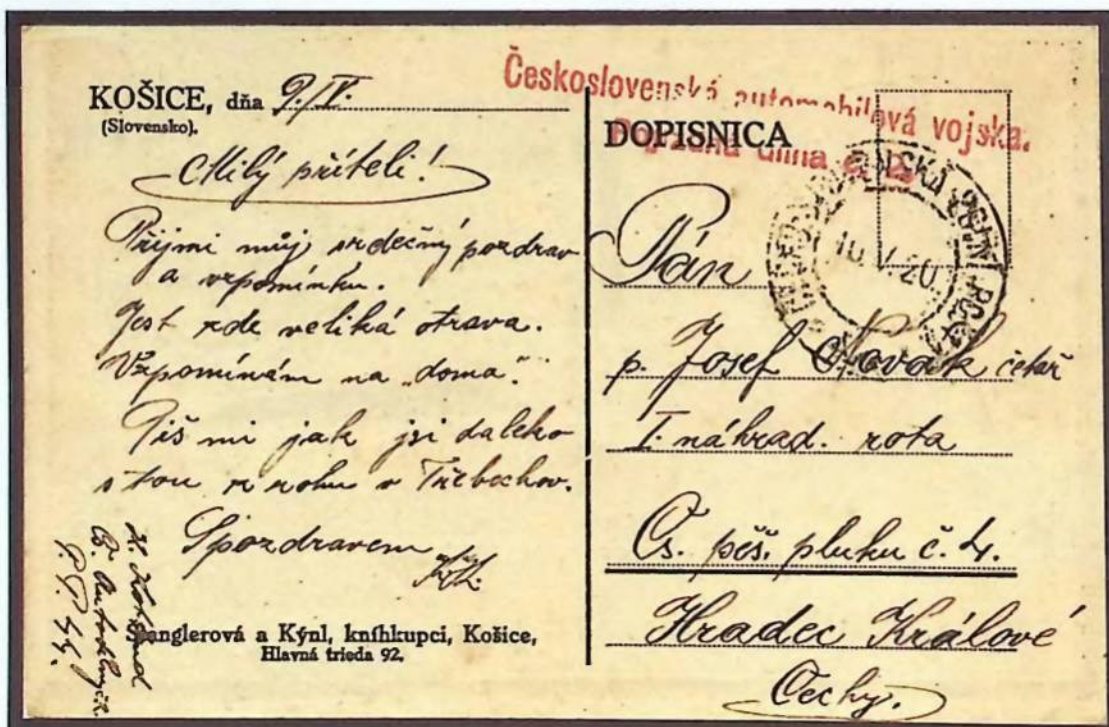 KOŠICE, dňa 9./IV.
(Slovensko).
Milý příteli!
Přijmi můj srdečný pozdrav
a vzpomínku.
Jest zde veliká otrava.
Vzpomínám na „doma“.
Piš mi jak jsi daleko
s tou z rohu v Třebechov.
S pozdravem
Spanglerová a Kýnl, kníhkupci, Košice,
Hlavná trieda 92.
Československá automobilová vojska.
DOPISNICA
10. 20.
Pán
p. Josef Novák četař
I. náhrad. rota
Čs. pěš. pluku č. 4.
Hradec Králové
Čechy.